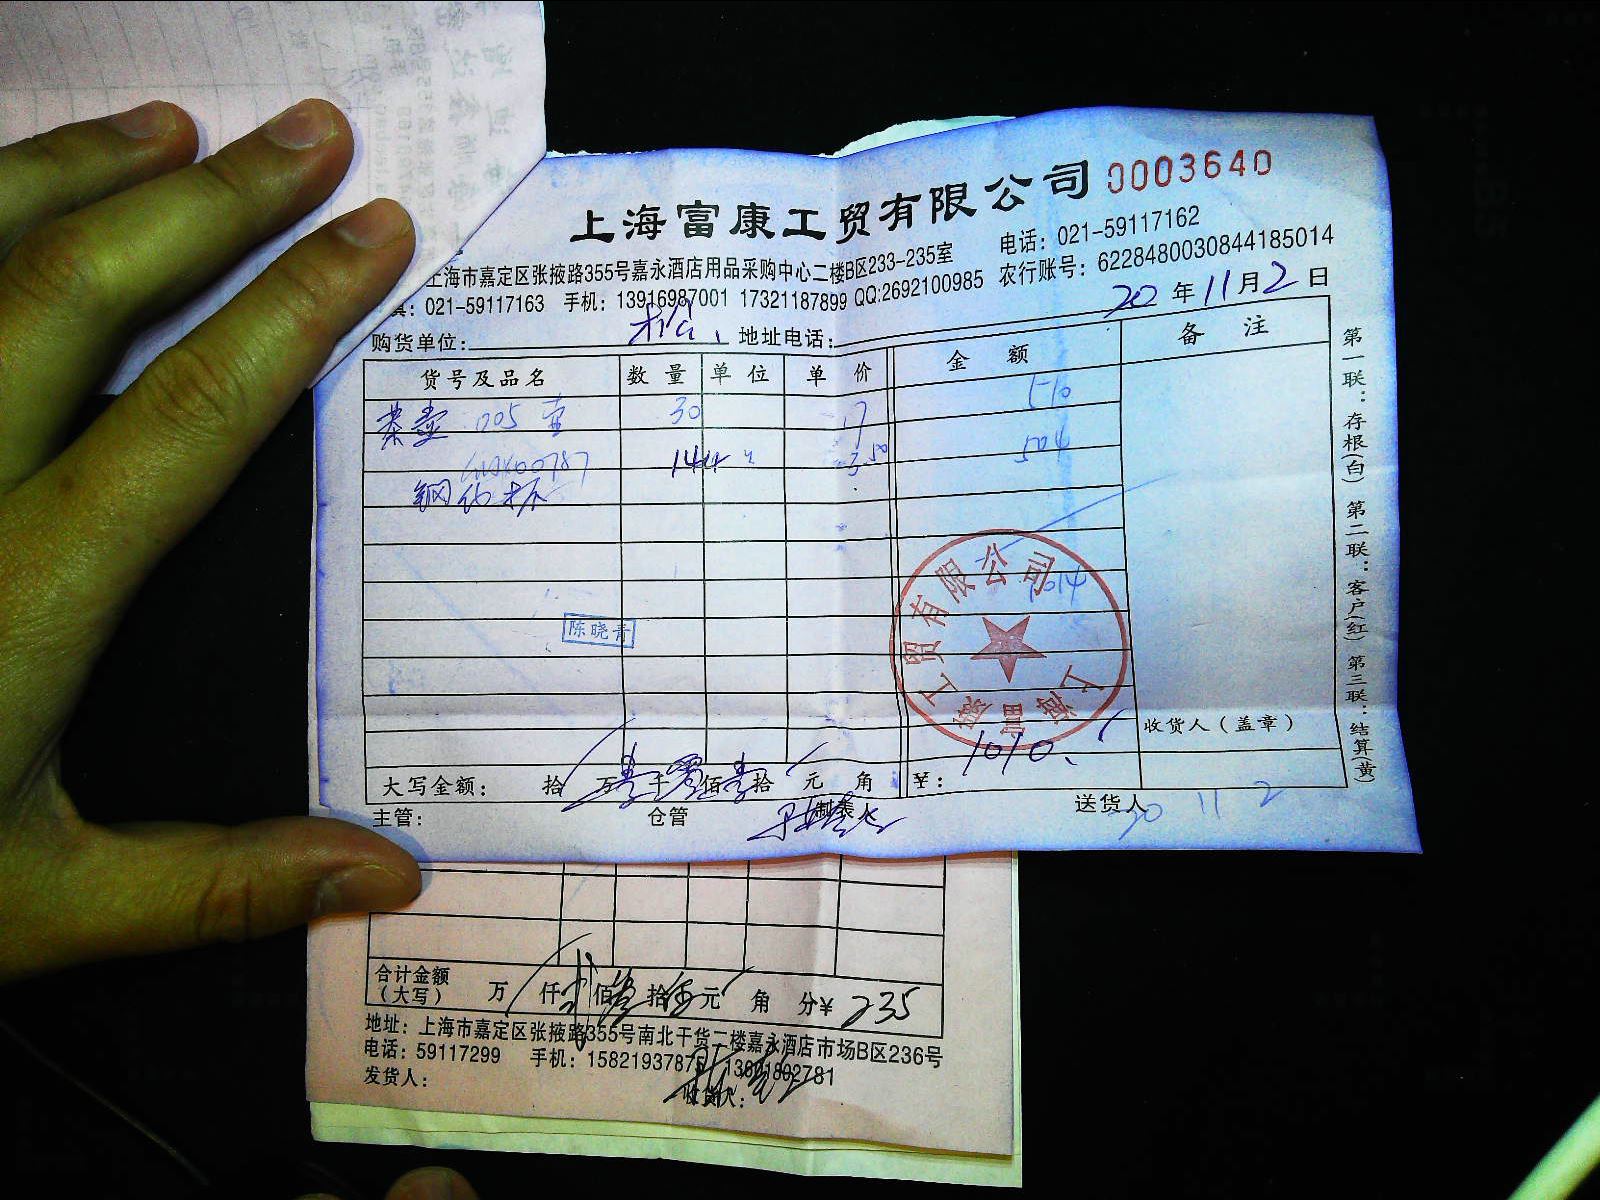 上海富康工贸有限公司 0003640
上海市嘉定区张掖路355号嘉永酒店用品采购中心二楼B区233-235室 电话：021-59117162
真：021-59117163 手机：13916987001 17321187899 QQ:2692100985 农行账号：6228480030844185014
20 年 11 月 2 日
购货单位： 地址电话：
货号及品名 数量 单位 单价 金额 备注
茶壶 005 30 17 510
144 3.50 504
钢化杯
1014
陈晓青
上海富康工贸有限公司
收货人（盖章）
大写金额： 拾 万 壹 千 零 佰 壹 拾 元 角 ¥： 1010.
主管： 仓管 制表人 送货人
20 11 2
第一联：存根(白) 第二联：客户(红) 第三联：结算(黄)
合计金额
（大写） 万 仟 贰 佰 叁 拾 伍 元 角 分¥ 235
地址：上海市嘉定区张掖路355号南北干货二楼嘉永酒店市场B区236号
电话：59117299 手机：15821937875
发货人： 收货人：